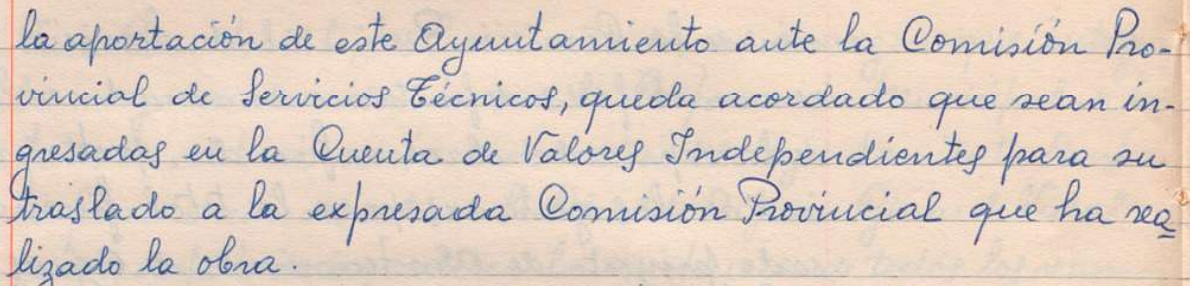 la aportación de este Ayuntamiento ante la Comisión Pro-
vincial de Servicios Técnicos, queda acordado que sean in-
gresadas en la Cuenta de Valores Independientes para su
traslado a la expresada Comisión Provincial que ha rea
lizado la obra.